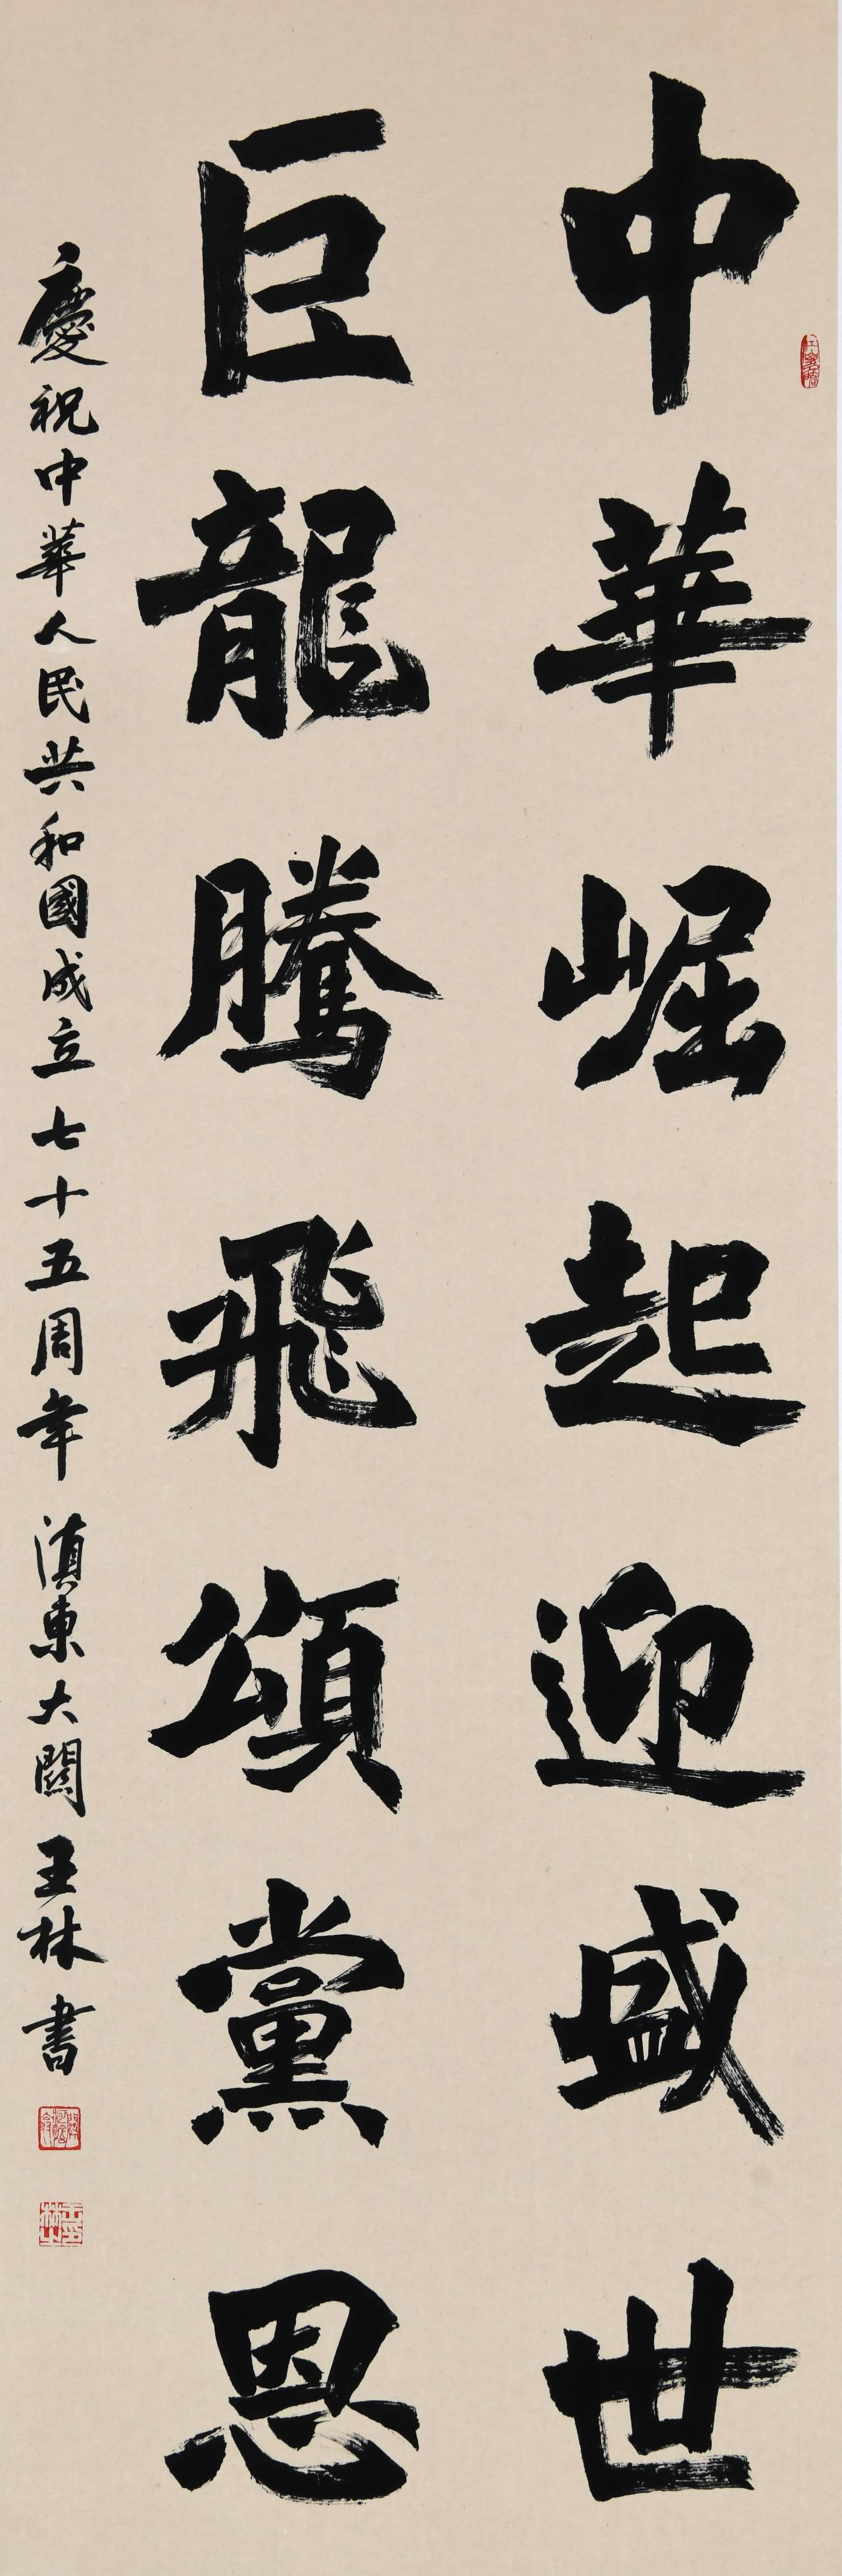 中華崛起迎盛世
巨龍騰飛頌黨恩
慶祝中華人民共和國成立七十五周年 滇東大關 王林書